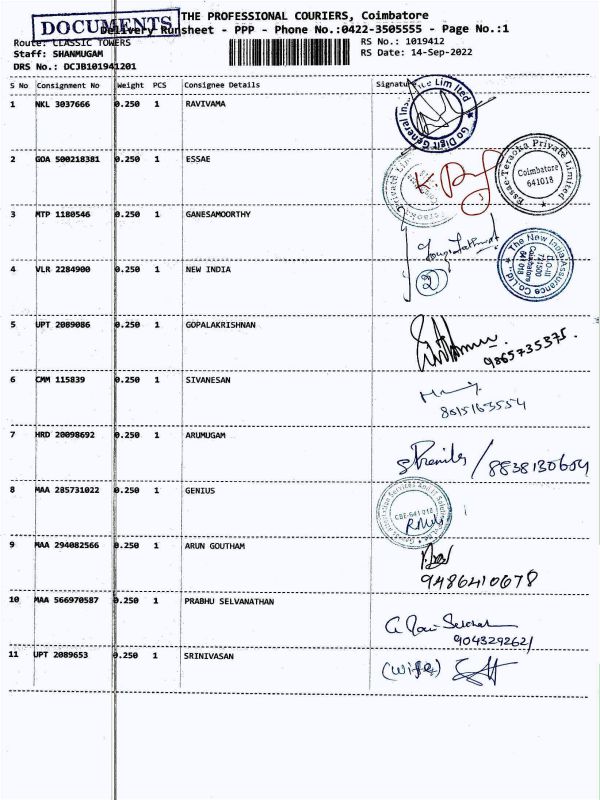 DOCUMENTS
THE PROFESSIONAL COURIERS, Coimbatore
Delivery Runsheet - PPP - Phone No.:0422-3505555 - Page No.:1
Route: CLASSIC TOWERS RS No.: 1019412
Staff: SHANMUGAM RS Date: 14-Sep-2022
DRS No.: DCJB101941201
S No Consignment No Weight PCS Consignee Details Signature
1 NKL 3037666 0.250 1 RAVIVAMA
Go Digit General Limited
2 GOA 500218381 0.250 1 ESSAE
Essae-Teraoka Private Limited
Coimbatore
641018
3 MTP 1180546 0.250 1 GANESAMOORTHY
4 VLR 2284900 0.250 1 NEW INDIA
2
The New India Assurance Co.Ltd.
D.O-III
721500
Coimbatore
641 018
5 UPT 2089086 0.250 1 GOPALAKRISHNAN
9865735375.
6 CMM 115839 0.250 1 SIVANESAN
8015163554
7 HRD 20098692 0.250 1 ARUMUGAM
/8838130604
8 MAA 285731022 0.250 1 GENIUS
CBE-641 018
9 MAA 294082566 0.250 1 ARUN GOUTHAM
9486410678
10 MAA 566970587 0.250 1 PRABHU SELVANATHAN
9043292621
11 UPT 2089653 0.250 1 SRINIVASAN
(wife)